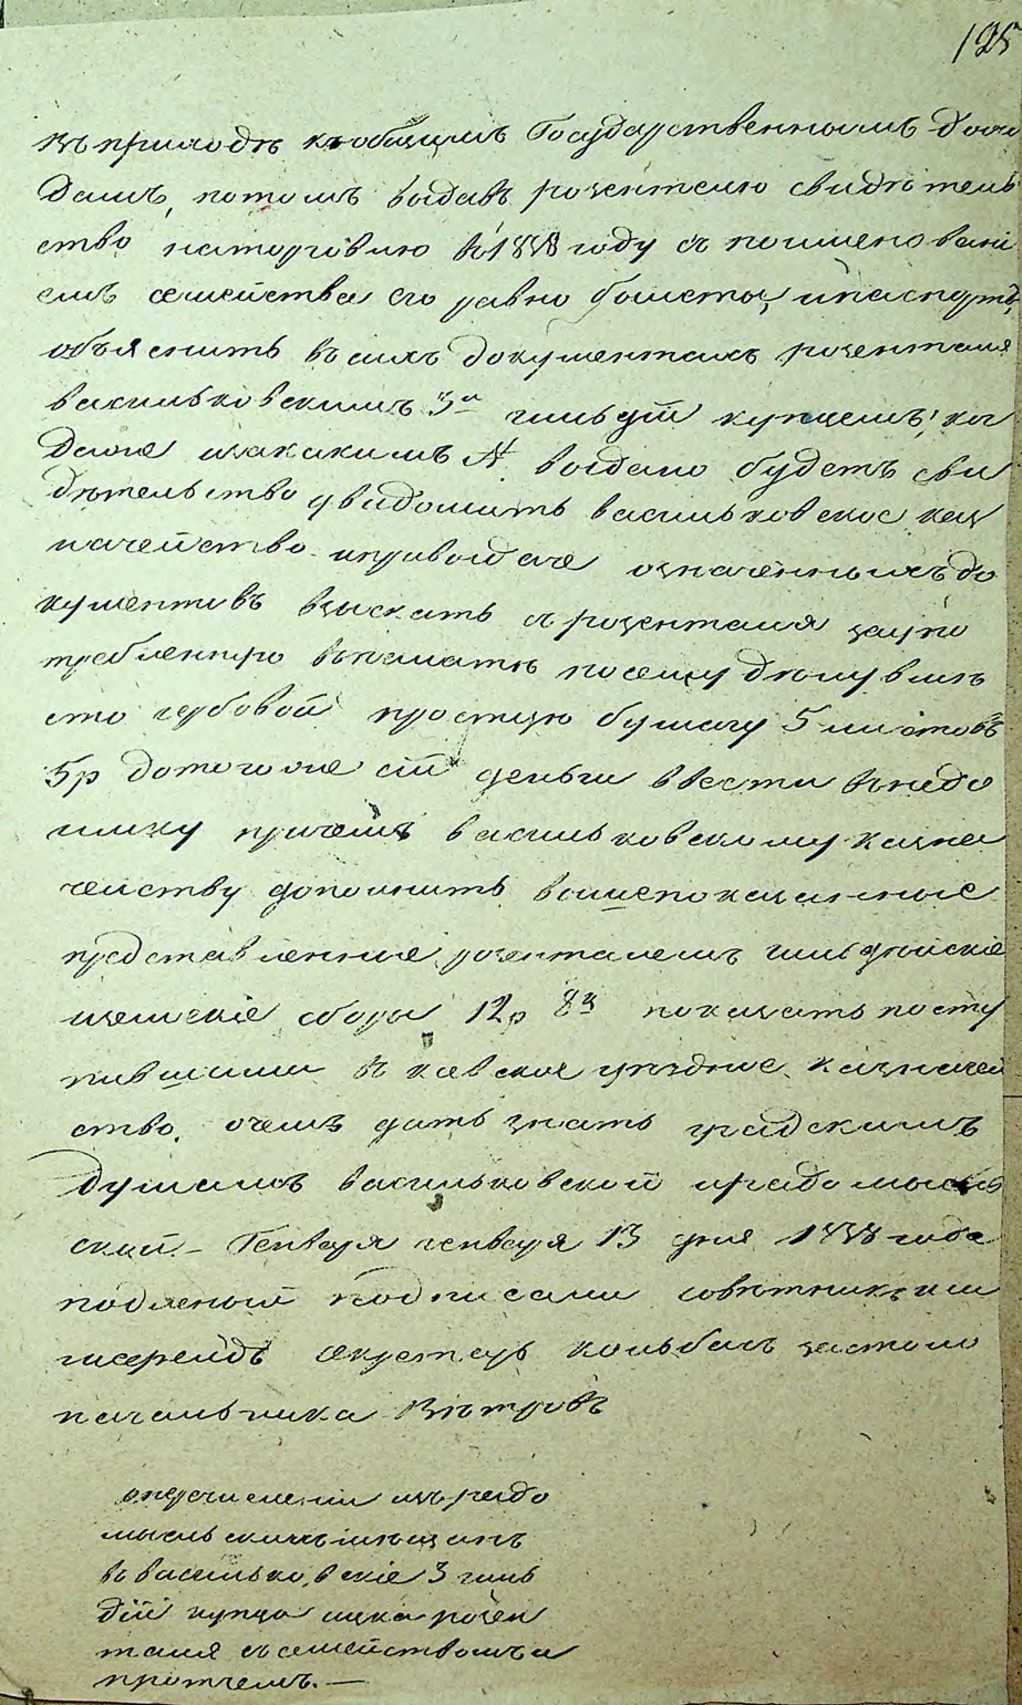 125
въ приходъ къ общимъ Государственнымъ дохо
дамъ, потомъ выдавъ розенталю свидѣтель
ство на торговлю въ 1838 году съ поименовані
емъ семейства его равно билеты, и паспортъ,
объяснить въ сихъ документахъ розенталя
васильковскимъ 3й гильдіи купцемъ, ког
далое и за какимъ № выдано будетъ сви
дѣтельство увѣдомить васильковское каз
начейство. и при выдаче означенныхъ до
кументовъ взыскать съ розенталя за упо
требленную въ палатѣ по сему дѣлу вмѣ
сто гербовой простую бумагу 5 листовъ
5р до того же сіи деньги ввести въ недо
имку причемъ васильковскому казна
чейству дополнить вышепоказанные
представленные розенталемъ гильдейскіе
земскіе сборы 12р 8к показать посту
пившими въ киевское уездное казначей
ство. о чемъ дать знать градскимъ
думамъ васильковской и радомысль
ской. – Генваря генваря 13 дня 1838 года
подленый подписали совѣтникъ
секретарь за столо
начальника Вѣтровъ
о перечислении изъ радо
мысльскихъ мѣщанъ
въ васильковскіе 3 гиль
діи купца ицка розен
таля съ семействомъ и
протчемъ. —